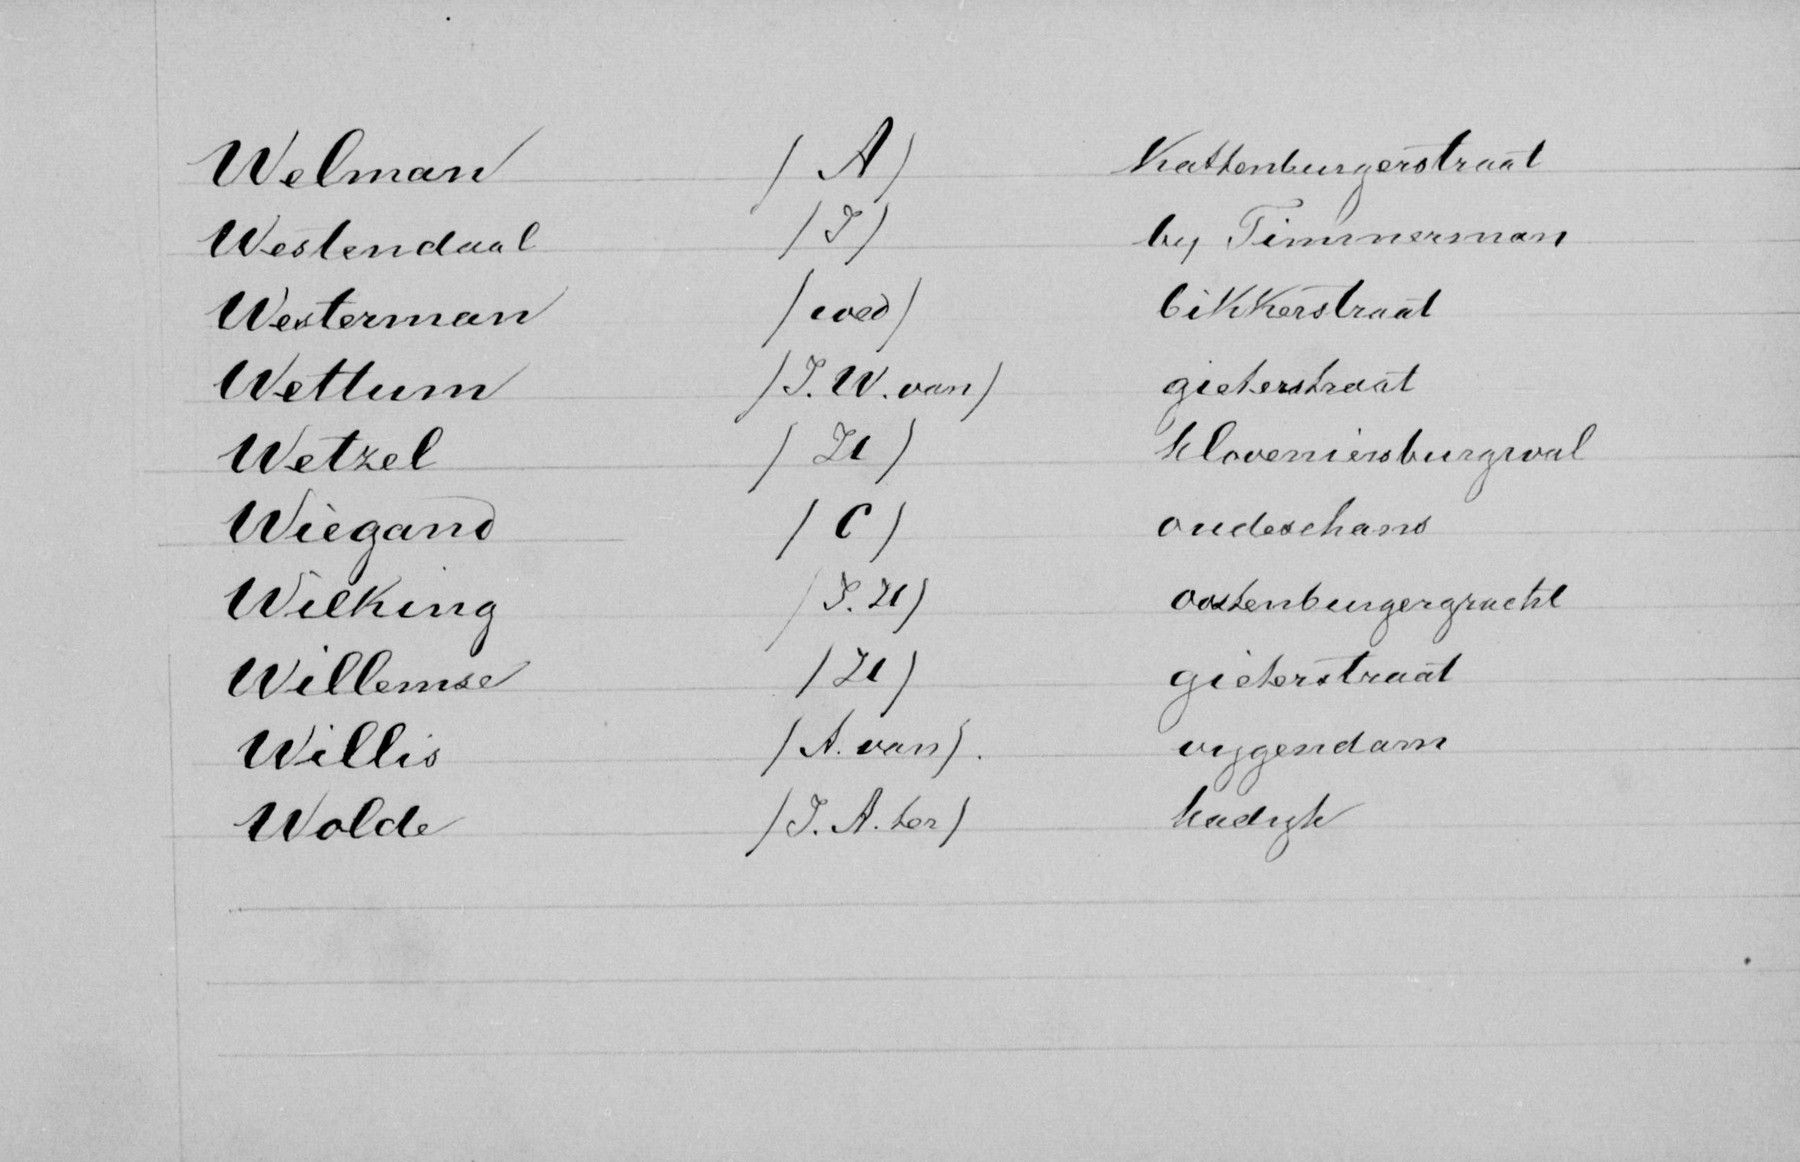 Welman (A) Kattenburgerstraat
Westendaal (J) by Timmerman
Westerman (wed) bikkerstraat
Wettum (J. W. van) gieterstraat
Wetzel (H) kloveniersburgwal
Wiegand (C) oudeschans
Wilking (J. H) oostenburgergracht
Willemse (H) gieterstraat
Willis (A. van). vygendam
Wolde (J. A. ter) kadyk